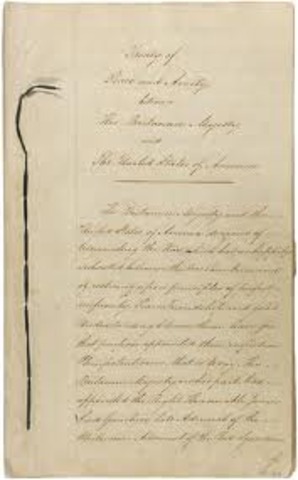 Treaty of
Peace and Amity
between
His Britannic Majesty
and
The United States of America
His Britannic Majesty and the
United States of America desirous of
terminating the War which has unhappily
subsisted between the two Countries and
of restoring upon principles of perfect
reciprocity, Peace, Friendship, and good
Understanding between them, have for
that purpose appointed their respective
Plenipotentiaries, that is to say, His
Britannic Majesty on his part has
appointed the Right Honourable James
Lord Gambier, late Admiral of the
White now Admiral of the Red Squadron
of